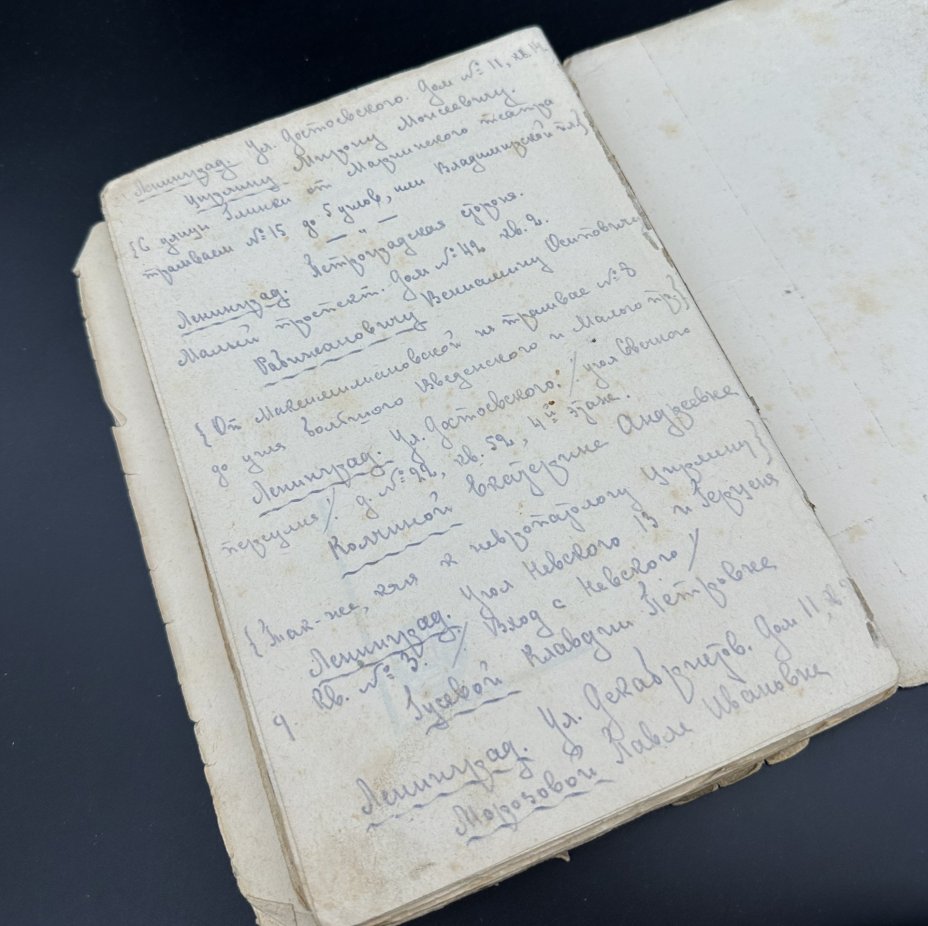 Ленинград. Ул. Достоевского. Дом № 11, кв. 14.
Цирлину Мирону Моисеевичу.
{С улицы Глинки от Мариинского театра
трамваем № 15 до 5 углов, или Владимирской пл.}
— „ —
Ленинград. Петроградская сторона.
Малый проспект. Дом № 42 кв. 2.
Рабиновичу Вениамину Осиповичу
{От Максимилиановской на трамвае № 8
до угла Большого Введенского и Малого пр.}
Ленинград. Ул. Достоевского. /угол Свечного
переулка/. д. № 22, кв. 52, 4й этаж.
Колчиной Екатерине Андреевне
{Так-же, как к невропатологу Цирлину}
Ленинград. Угол Невского 13 и Герцена
9. Кв. № 3. / Вход с Невского /
Гусевой Клавдии Петровне
Ленинград. Ул. Декабристов. Дом 11, к.
Морозовой Павле Ивановне